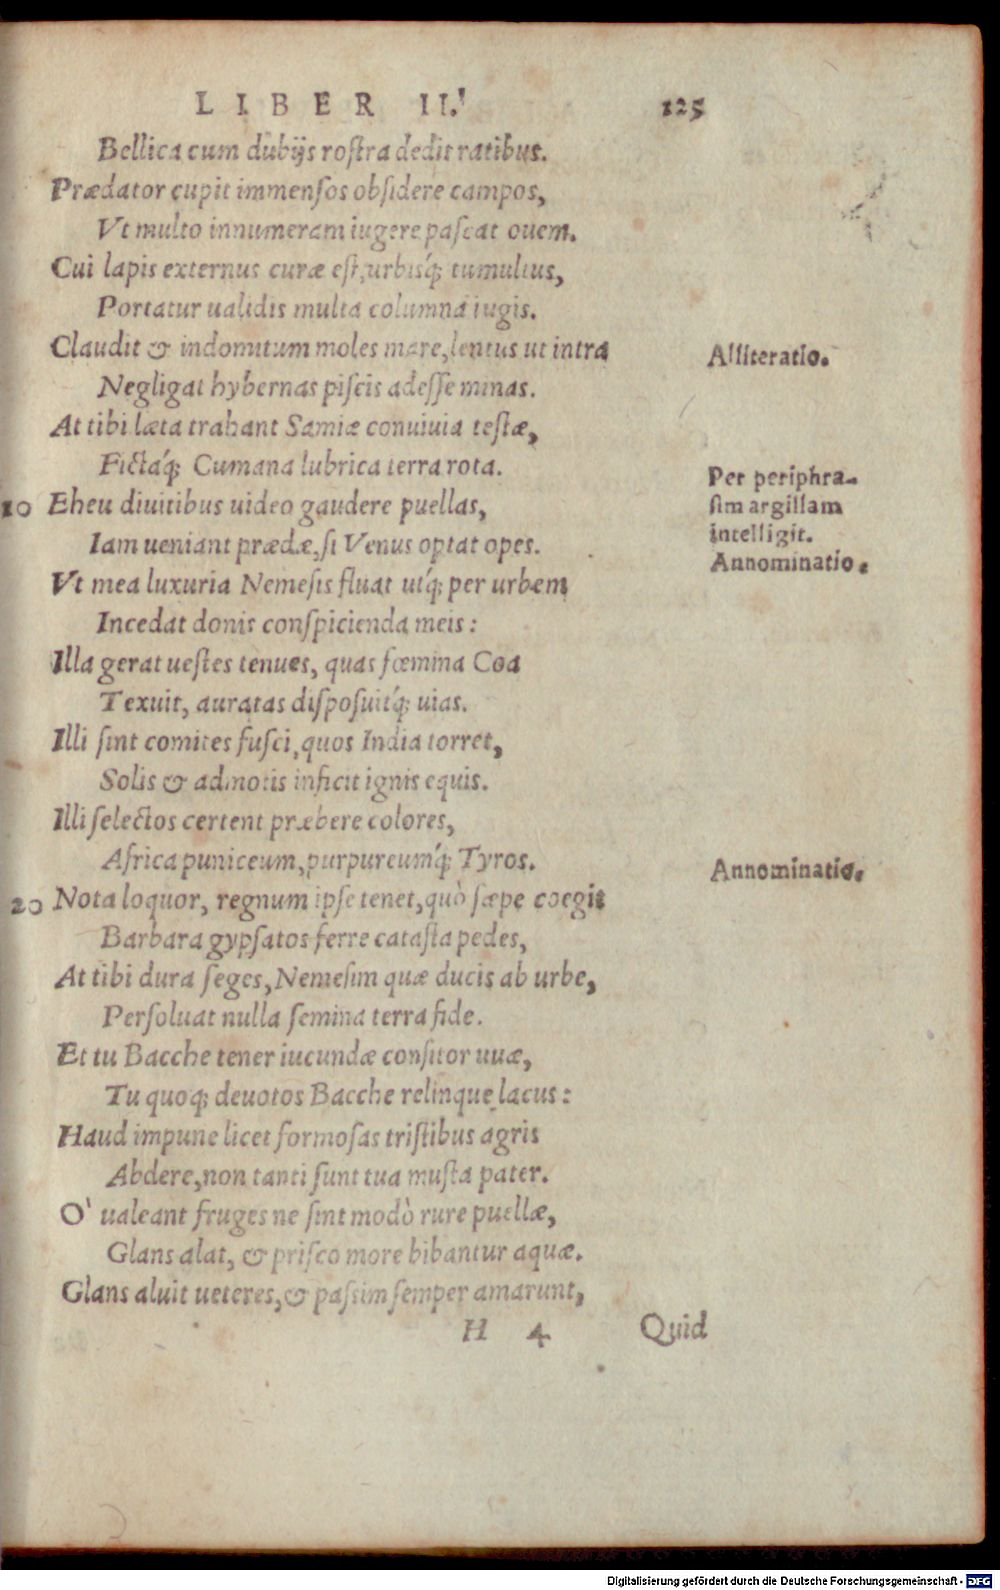 LIBER II.
125
Bellica cum dubijs roſtra dedit ratibus.
Prædator cupit immenſos obſidere campos,
Vt multo innumeram iugere paſcat ouem.
Cui lapis externus curæ eſt, urbisq́; tumultus,
Portatur ualidis multa columna iugis.
Claudit & indomitum moles mare, lentus ut intra
Alliteratio.
Negligat hybernas piſcis adeſſe minas.
At tibi læta trahant Samiæ conuiuia teſtæ,
Fictaq́; Cumana lubrica terra rota.
Per periphra-
sim argillam
intelligit.
10 Eheu diuitibus uideo gaudere puellas,
Iam ueniant prædæ, ſi Venus optat opes.
Annominatio.
Vt mea luxuria Nemeſis fluat utq́; per urbem
Incedat donis conſpicienda meis:
Illa gerat ueſtes tenues, quas fœmina Coa
Texuit, auratas diſpoſuitq́; uias.
Illi ſint comites fuſci, quos India torret,
Solis & admotis inficit ignis equis.
Illi ſelectos certent præbere colores,
Africa puniceum, purpureumq́; Tyros.
Annominatio.
20 Nota loquor, regnum ipſe tenet, quò ſæpe coegit
Barbara gypſatos ferre cataſta pedes,
At tibi dura ſeges, Nemeſim quæ ducis ab urbe,
Perſoluat nulla ſemina terra fide.
Et tu Bacche tener iucundæ conſitor uuæ,
Tu quoq; deuotos Bacche relinque lacus:
Haud impune licet formoſas triſtibus agris
Abdere, non tanti ſunt tua muſta pater.
O' ualeant fruges ne ſint modò rure puellæ,
Glans alat, & priſco more bibantur aquæ.
Glans aluit ueteres, & paſsim ſemper amarunt,
H 4
Quid
Digitalisierung gefördert durch die Deutsche Forschungsgemeinschaft - DFG